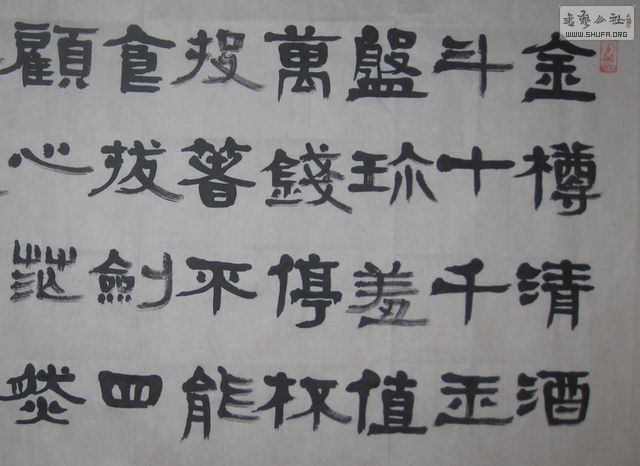 金樽清酒
斗十千玉
盤珎羞值
萬錢停杯
投箸不能
食拔劍四
顧心茫然
書藝公社
WWW.SHUFA.ORG